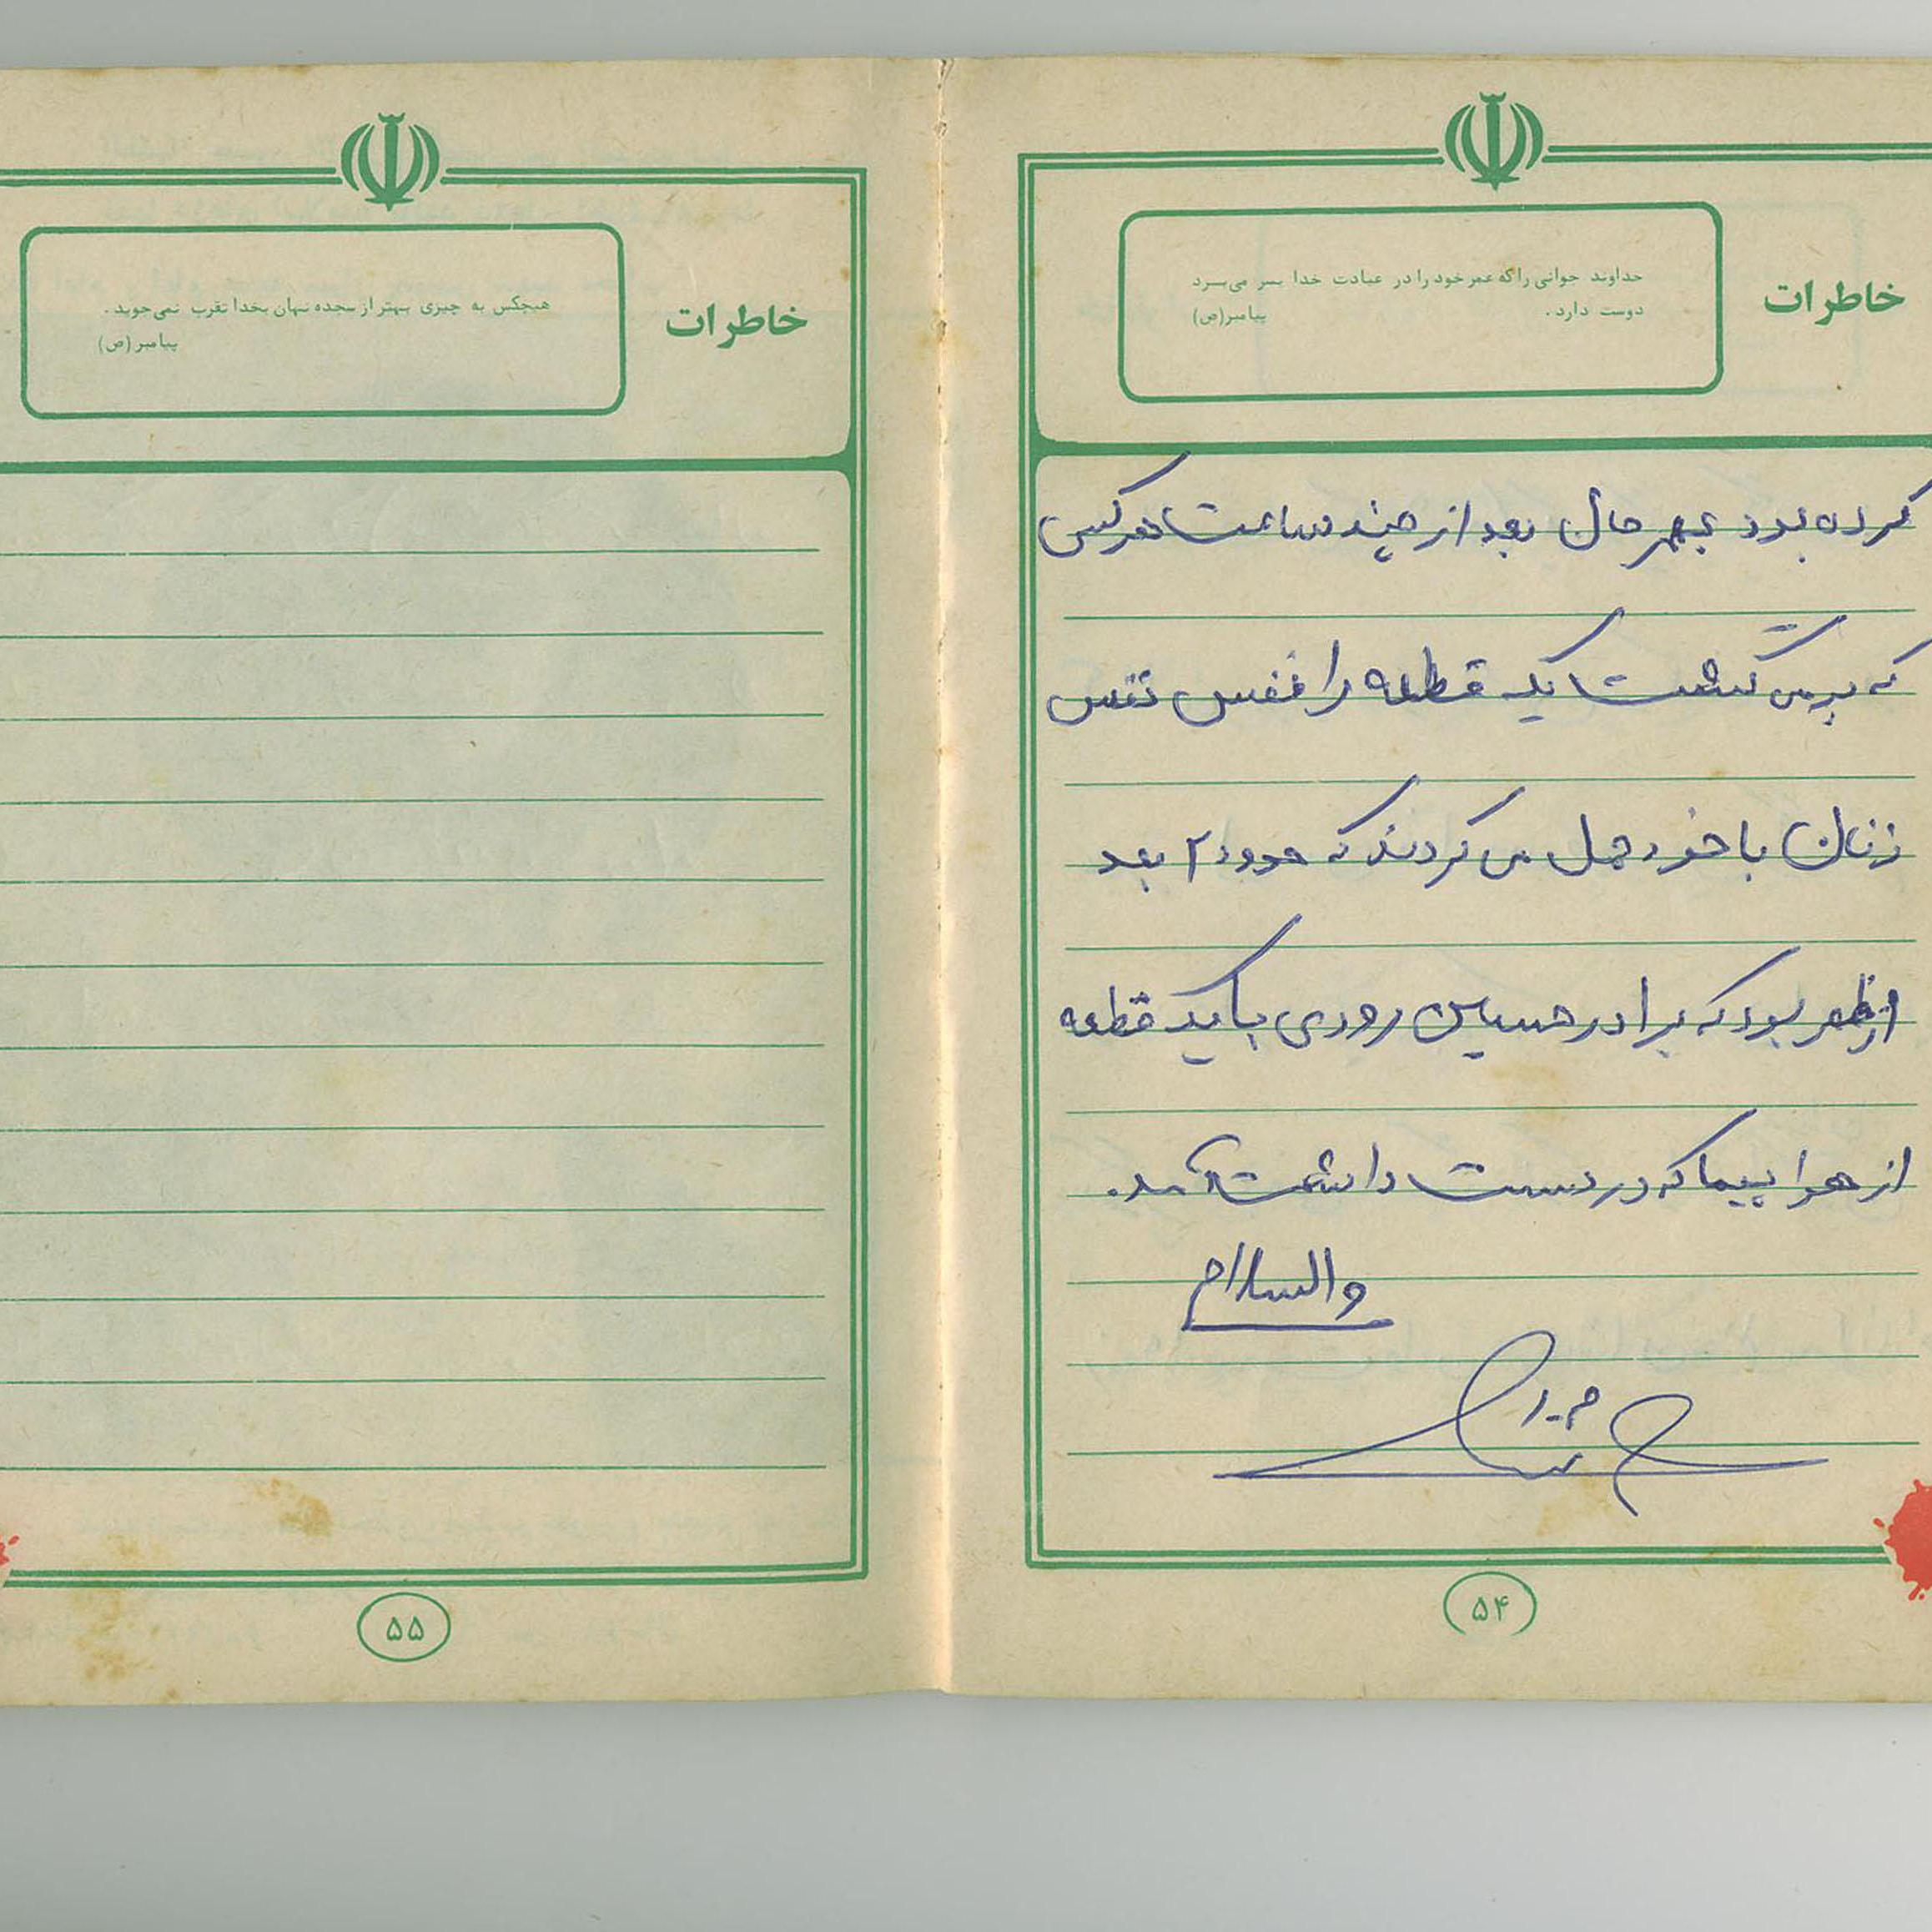 خاطرات
خداوند جوانی را که عمر خود را در عبادت خدا بسر می‌برد
دوست دارد. پیامبر(ص)
کرده بود بهرحال بعد از چند ساعت هرکس
که برمی‌گشت یک قطعه را نفس نفس
زنان با خود حمل می‌کردند که حدود ۲ بعد
از ظهر بود که برادر حسین رودی با یک قطعه
از هواپیما که در دست داشت آمد.
والسلام
۵۴
خاطرات
هیچکس به چیزی بهتر از سجده نهان بخدا تقرب نمی‌جوید.
پیامبر (ص)
۵۵